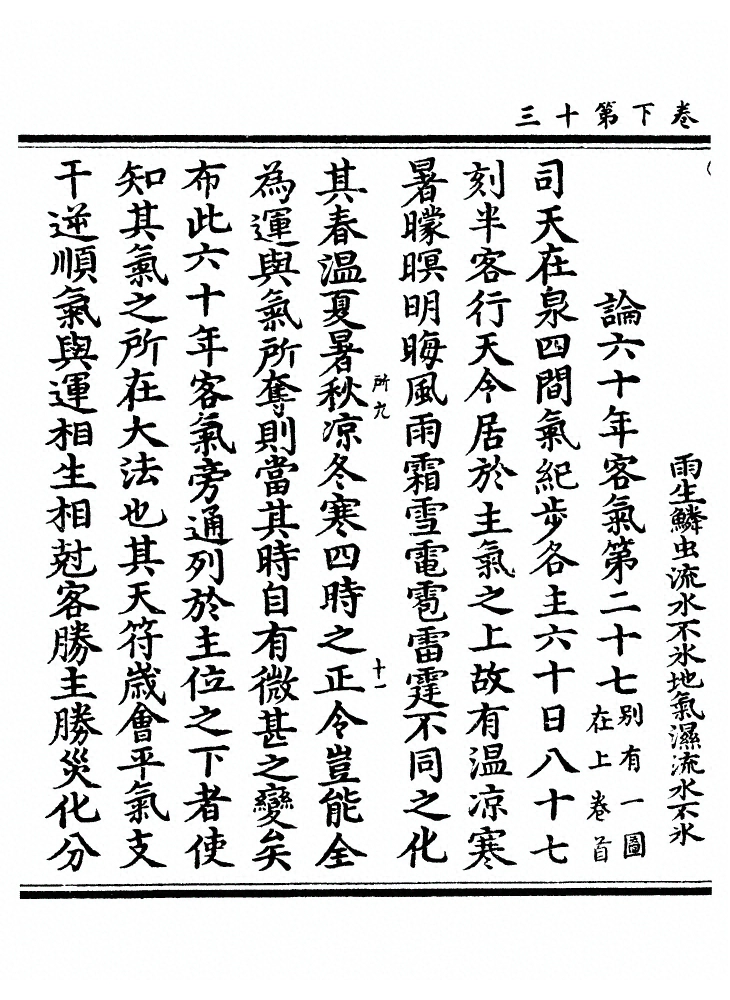 卷下第十三
雨生鱗虫流水不氷地氣濕流水不氷
論六十年客氣第二十七
別有一圖
在上卷首
司天在泉四間氣紀步各主六十日八十七
刻半客行天令居於主氣之上故有温凉寒
暑矇暝明晦風雨霜雪電雹雷霆不同之化
其春温夏暑秋凉冬寒四時之正令豈能全
所九
十一
為運與氣所奪則當其時自有微甚之變矣
布此六十年客氣旁通列於主位之下者使
知其氣之所在大法也其天符歲會平氣支
干逆順氣與運相生相尅客勝主勝災化分